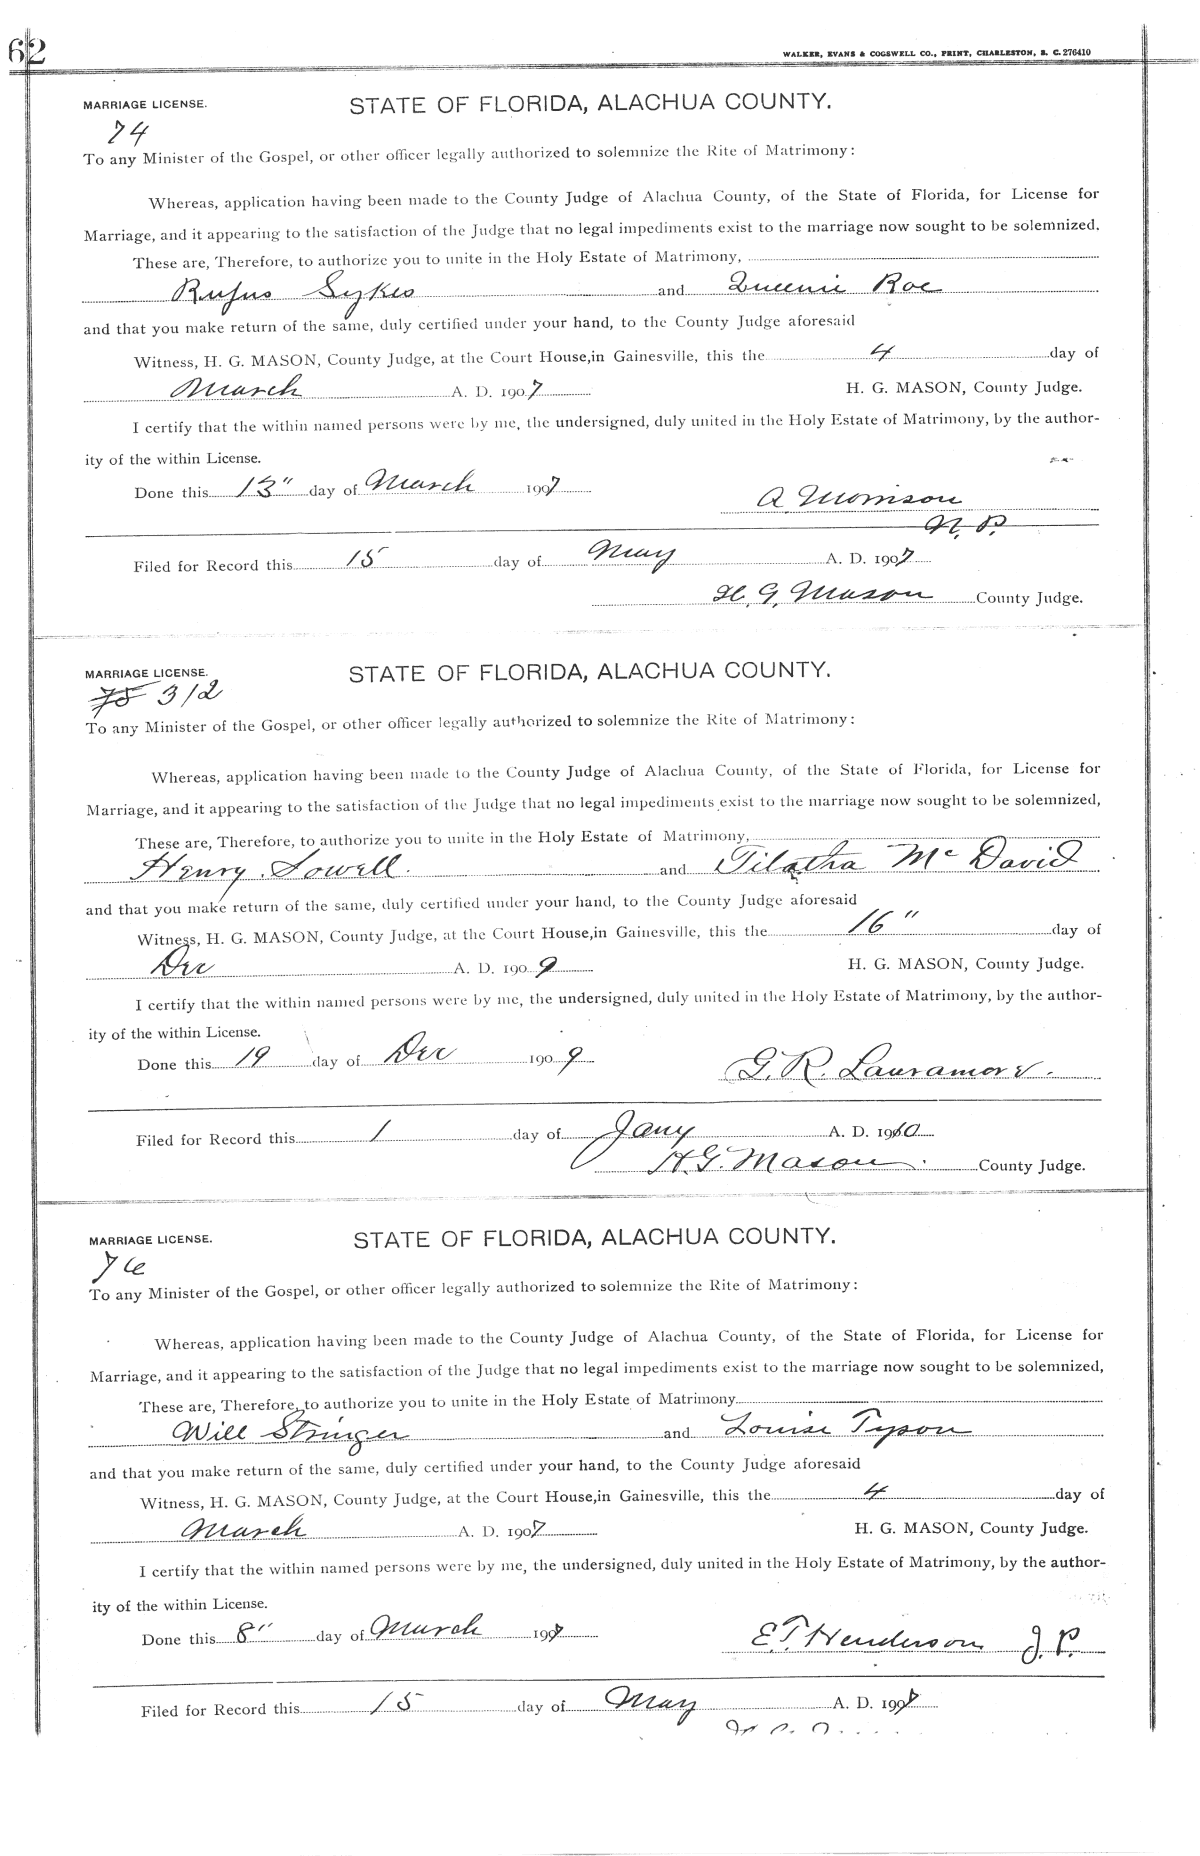 62
WALKER, EVANS & COGSWELL CO., PRINT, CHARLESTON, S. C. 276410
MARRIAGE LICENSE. STATE OF FLORIDA, ALACHUA COUNTY.
74
To any Minister of the Gospel, or other officer legally authorized to solemnize the Rite of Matrimony:
Whereas, application having been made to the County Judge of Alachua County, of the State of Florida, for License for
Marriage, and it appearing to the satisfaction of the Judge that no legal impediments exist to the marriage now sought to be solemnized.
These are, Therefore, to authorize you to unite in the Holy Estate of Matrimony,
Rufus Sykes and Queenie Roe
and that you make return of the same, duly certified under your hand, to the County Judge aforesaid
Witness, H. G. MASON, County Judge, at the Court House, in Gainesville, this the 4 day of
March A. D. 1907 H. G. MASON, County Judge.
I certify that the within named persons were by me, the undersigned, duly united in the Holy Estate of Matrimony, by the author-
ity of the within License.
Done this 13" day of March 1907
A. Morrison
N. P.
Filed for Record this 15 day of May A. D. 1907
H. G. Mason County Judge.
MARRIAGE LICENSE. STATE OF FLORIDA, ALACHUA COUNTY.
75 312
To any Minister of the Gospel, or other officer legally authorized to solemnize the Rite of Matrimony:
Whereas, application having been made to the County Judge of Alachua County, of the State of Florida, for License for
Marriage, and it appearing to the satisfaction of the Judge that no legal impediments exist to the marriage now sought to be solemnized,
These are, Therefore, to authorize you to unite in the Holy Estate of Matrimony,
Henry Sowell and Tilatha McDavid
and that you make return of the same, duly certified under your hand, to the County Judge aforesaid
Witness, H. G. MASON, County Judge, at the Court House, in Gainesville, this the 16" day of
Dec A. D. 1909 H. G. MASON, County Judge.
I certify that the within named persons were by me, the undersigned, duly united in the Holy Estate of Matrimony, by the author-
ity of the within License.
Done this 19 day of Dec 1909
G. R. Lauramore.
Filed for Record this 1 day of Jany A. D. 1910
H. G. Mason County Judge.
MARRIAGE LICENSE. STATE OF FLORIDA, ALACHUA COUNTY.
76
To any Minister of the Gospel, or other officer legally authorized to solemnize the Rite of Matrimony:
Whereas, application having been made to the County Judge of Alachua County, of the State of Florida, for License for
Marriage, and it appearing to the satisfaction of the Judge that no legal impediments exist to the marriage now sought to be solemnized,
These are, Therefore, to authorize you to unite in the Holy Estate of Matrimony
Will Stringer and Louise Tyson
and that you make return of the same, duly certified under your hand, to the County Judge aforesaid
Witness, H. G. MASON, County Judge, at the Court House, in Gainesville, this the 4 day of
March A. D. 1907 H. G. MASON, County Judge.
I certify that the within named persons were by me, the undersigned, duly united in the Holy Estate of Matrimony, by the author-
ity of the within License.
Done this 8" day of March 1907
E T Henderson J. P.
Filed for Record this 15 day of May A. D. 1907